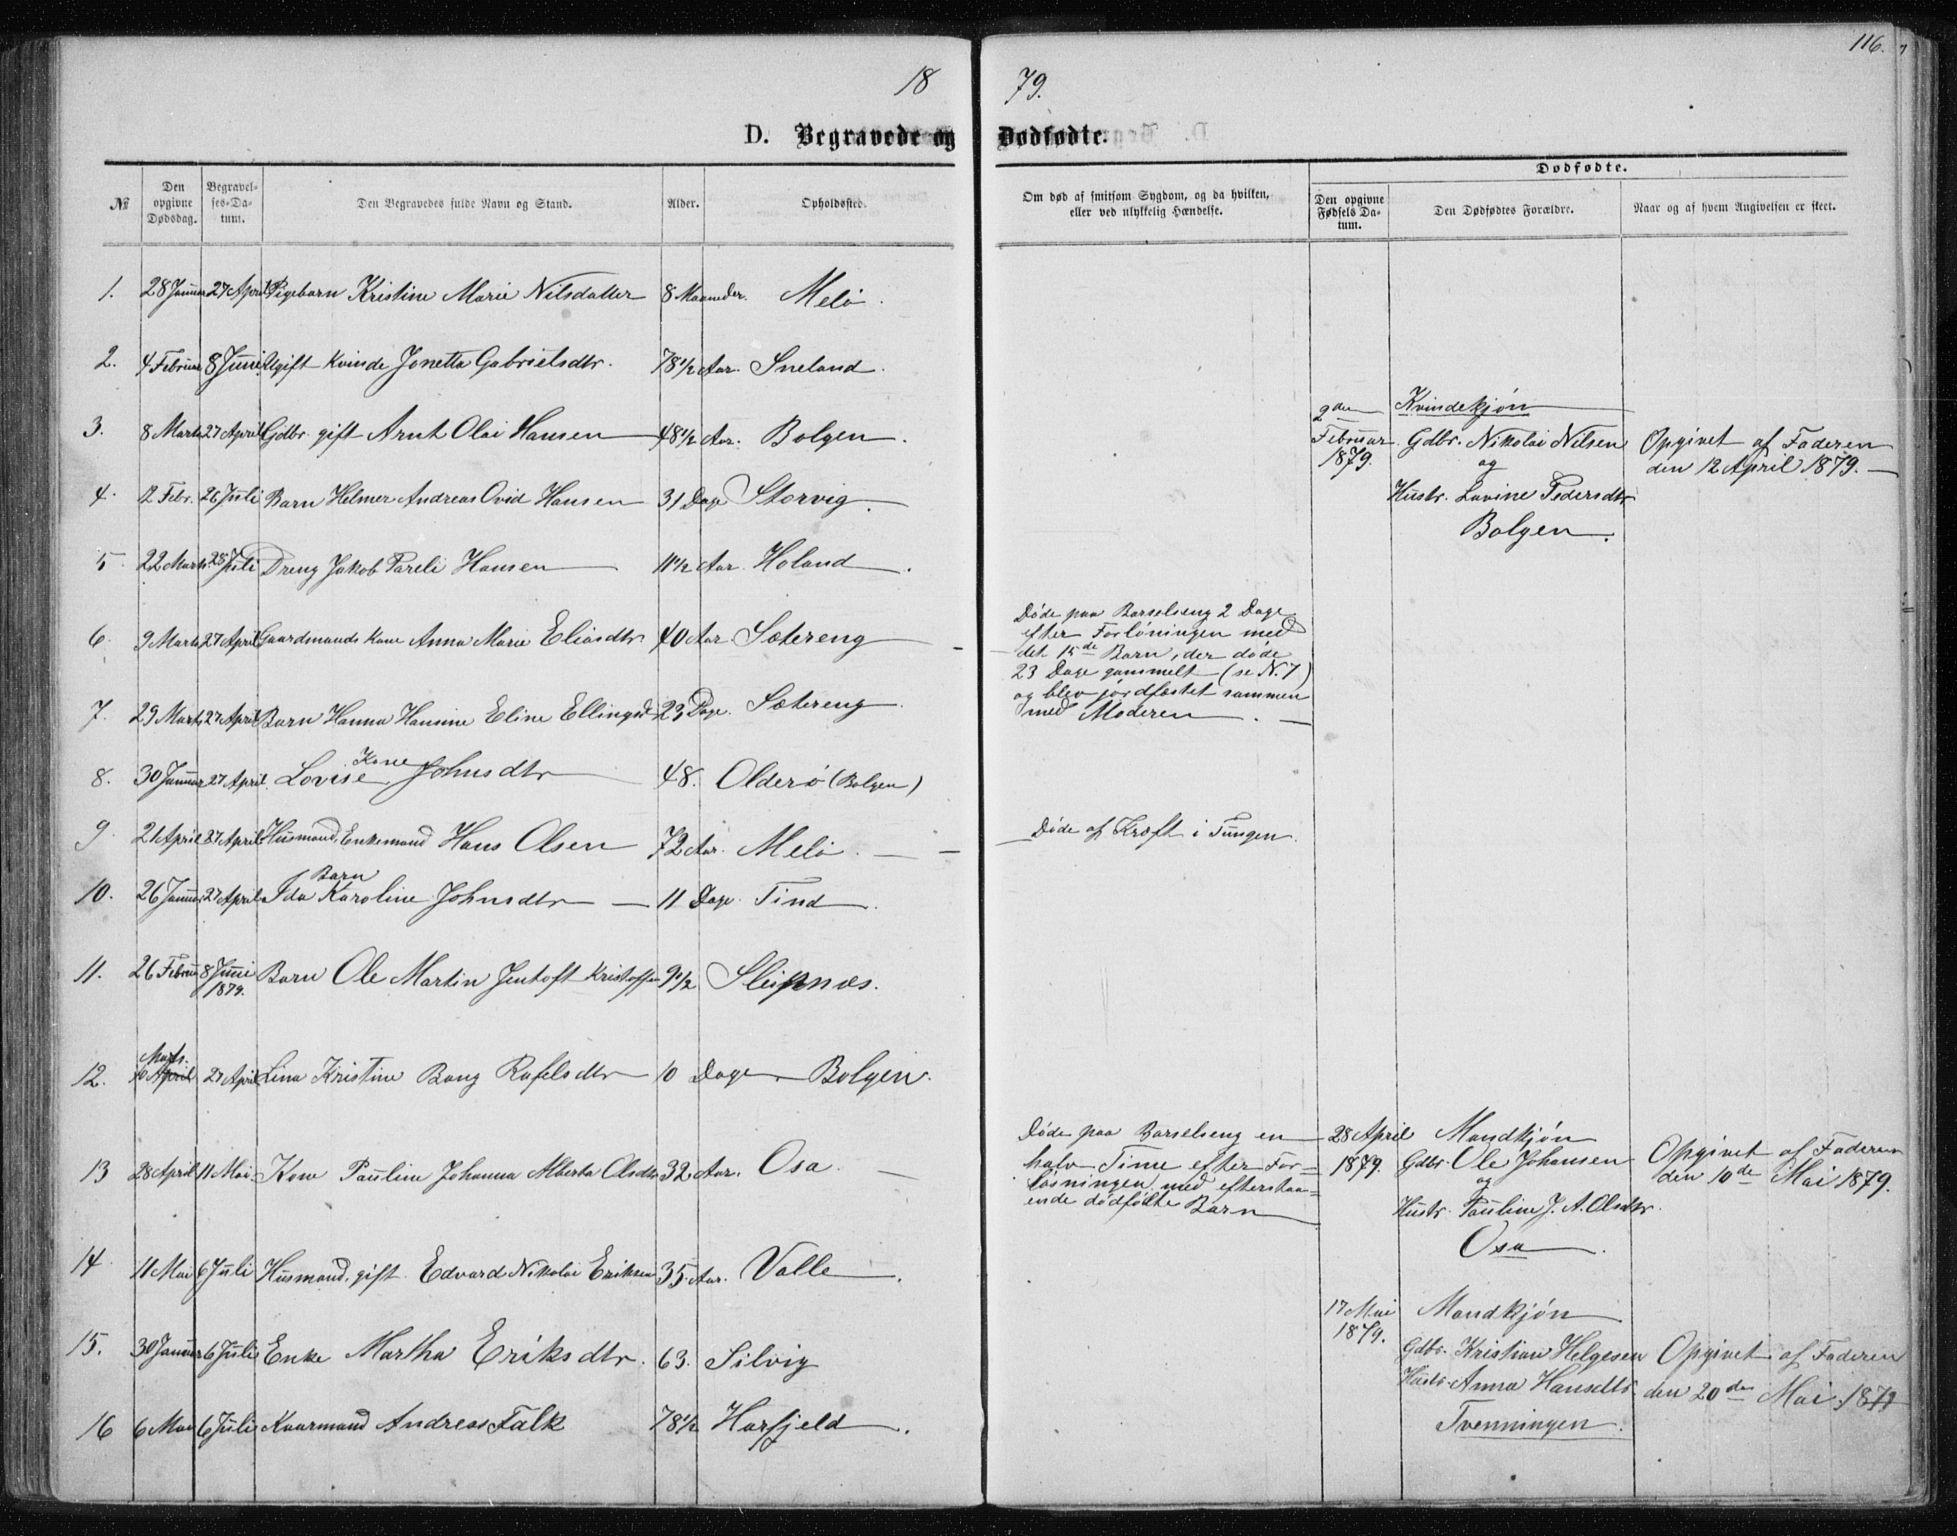 116.
18 79.
D. Begravede og Dødfødte.
№ Den opgivne Dødsdag. Begravelses-Datum. Den Begravedes fulde Navn og Stand. Alder. Opholdssted.
Om død af smitsom Sygdom, og da hvilken, eller ved ulykkelig Hændelse.
Dødfødte.
Den opgivne Fødsels Datum. Den Dødfødtes Forældre. Naar og af hvem Angivelsen er skeet.
1. 28 Januar 27 April Pigebarn Kristine Marie Nilsdatter 8 Maaneder. Melø.
2. 4 Februar 8 Juni Ugift Kvinde Jonetta Gabrielsdtr. 78 1/2 Aar. Sneland.
3. 8 Marts 27 April Gdbr. gift Arnt Olai Hansen 48 1/2 Aar. Bolgen.
4. 12 Febr. 26 Juli Barn Helmer Andreas Ovid Hansen 31 Dage Storvig.
5 22 Marts 28 Juli Dreng Jakob Pareli Hansen 11 1/2 Aar. Holand.
6. 9 Marts 27 April Gaardmands Kone Anna Marie Eliasdtr 40 Aar. Sætereng
7. 29 Marts 27 April Barn Hanna Hansine Eline Ellingsd 23 Dage. Sætereng.
8. 30 Januar 27 April. Lovise Kone Johnsdtr 48. Olderø (Bolgen)
9. 21 April 27 April Husmand. Enkemand Hans Olsen 72 Aar. Melø.
10. 26 Januar 27 April Barn Ida Karoline Johnsdtr 11 Dage. Tind.
11. 26 Februar 8 Juni 1879. Barn Ole Martin Jentoft Kristoffer 9 1/2 Sleipnæs.
12. 10 April Marts. 27 April Lina Kristine Bang Rafelsdtr 10 Dage Bolgen.
13 28 April 11 Mai Kone Pauline Johanna Alberta Olsdtr 32 Aar. Osa.
14 11 Mai 6 Juli Husmand. gift. Edvard Nikolai Eriksen 35 Aar. Valle.
15. 30 Januar 6 Juli Enke Martha Eriksdtr. 63. Silvig
16 6 Mai 6 Juli Kaarmand Andreas Falk 78 1/2 Harfjeld.
Døde paa Barselseng 2 Dage
efter Forløsningen med
det 15de Barn, der døde
23 Dage gammelt (se N. 7)
og blev jordfæstet sammen
med Moderen.
Døde af Kræft i Tungen.
Døde paa Barselseng en
halv Time efter For=
løsningen med efterstaa=
ende dødfødte Barn
2den
Februar
1879.
Kvindekjøn
Gdbr. Nikolai Nilsen
og
Hustr. Lovine Pedersdtr
Bolgen.
Opgivet af Faderen
den 12 April 1879.
28 April
1879.
Mandkjøn
Gdbr. Ole Johansen
og
Hustr. Pauline J. A. Olsdtr.
Osa.
Opgivet af Faderen
den 10de Mai 1879.
17 Mai
1879.
Mandkjøn
Gdbr. Kristian Helgesen
Hustr. Anna Hansdtr
Tvenningen.
Opgivet af Faderen
den 20de Mai 1879